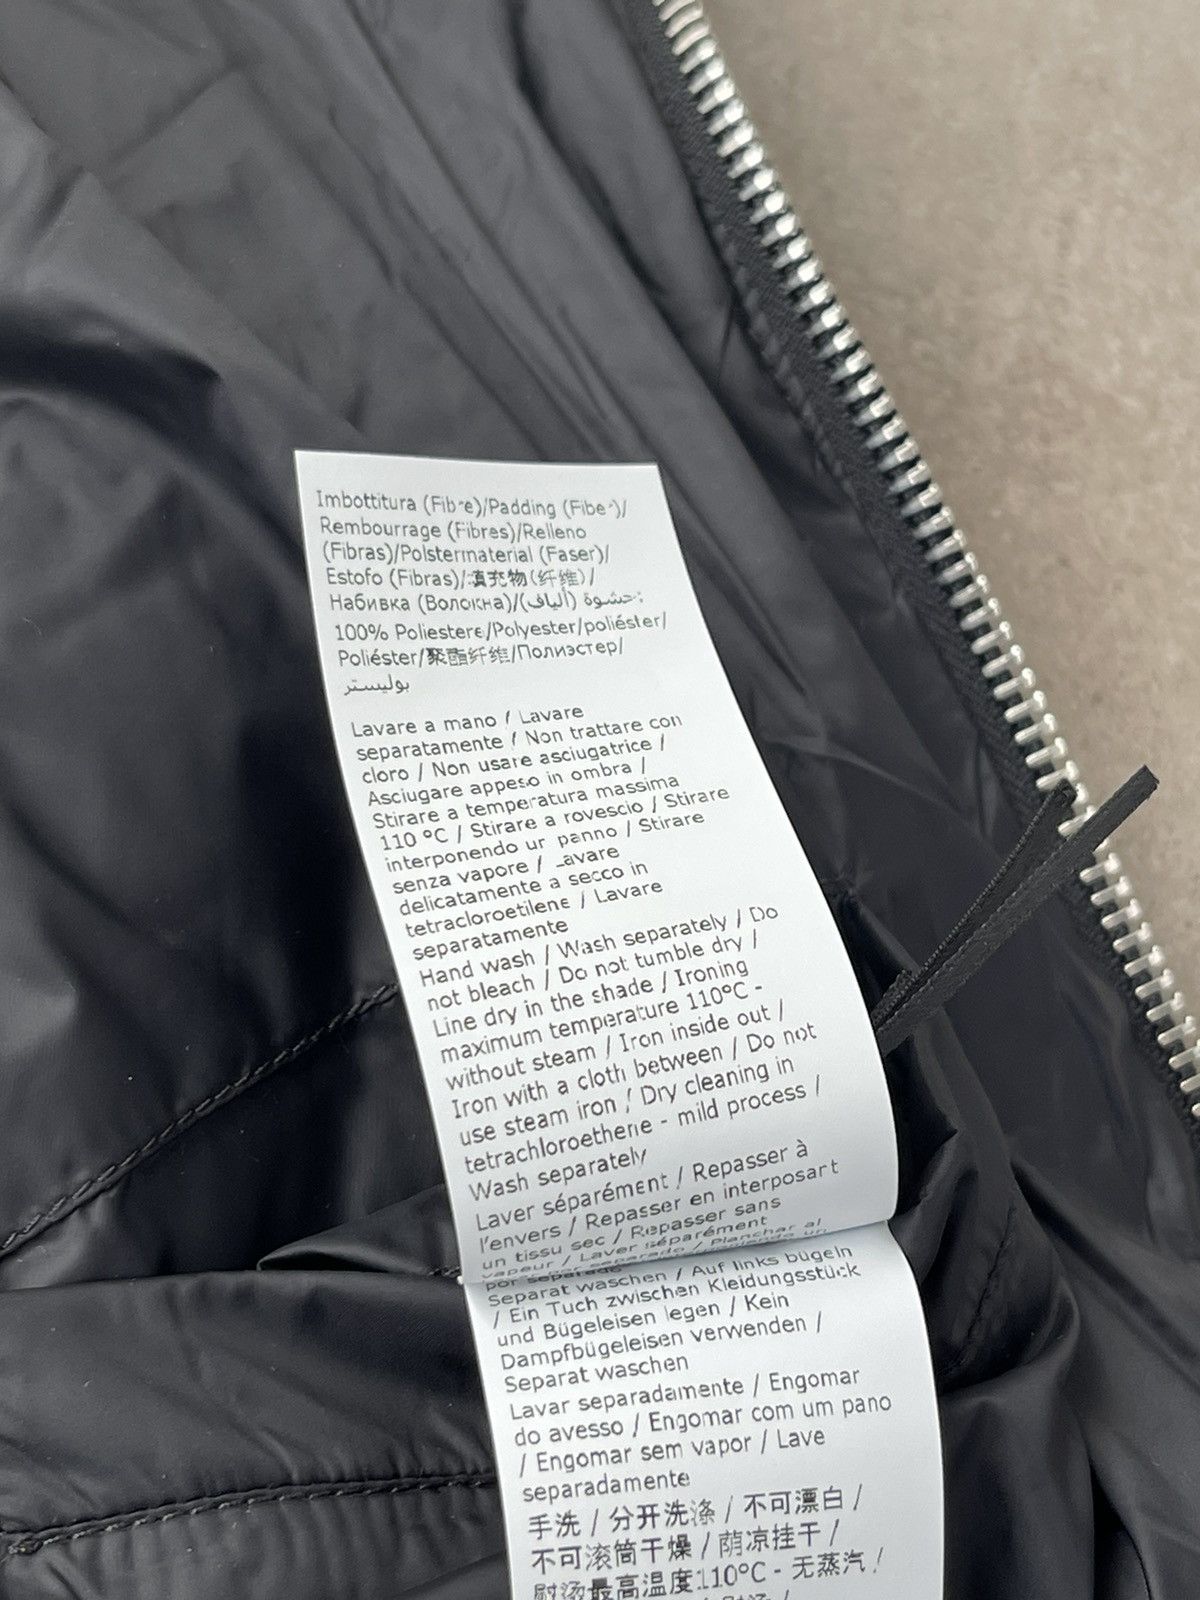 Imbottitura (Fibre)/Padding (Fiber)/
Rembourrage (Fibres)/Relleno
(Fibras)/Polstermaterial (Faser)/
Estofo (Fibras)/填充物(纤维)/
Набивка (Волокна)/(ألياف) حشوة:
100% Poliestere/Polyester/poliéster/
Poliéster/聚酯纤维/Полиэстер/
بوليستر
Lavare a mano / Lavare
separatamente / Non trattare con
cloro / Non usare asciugatrice /
Asciugare appeso in ombra /
Stirare a temperatura massima
110 °C / Stirare a rovescio / Stirare
interponendo un panno / Stirare
senza vapore / Lavare
delicatamente a secco in
tetracloroetilene / Lavare
separatamente
Hand wash / Wash separately / Do
not bleach / Do not tumble dry /
Line dry in the shade / Ironing
maximum temperature 110°C -
without steam / Iron inside out /
Iron with a cloth between / Do not
use steam iron / Dry cleaning in
tetrachloroethene - mild process /
Wash separately
Laver séparément / Repasser à
l'envers / Repasser en interposant
un tissu sec / Repasser sans
vapeur / Laver séparément
por separado / Planchar al
por separado
Separat waschen / Auf links bügeln
/ Ein Tuch zwischen Kleidungsstück
und Bügeleisen legen / Kein
Dampfbügeleisen verwenden /
Separat waschen
Lavar separadamente / Engomar
do avesso / Engomar com um pano
/ Engomar sem vapor / Lave
separadamente
手洗 / 分开洗涤 / 不可漂白 /
不可滚筒干燥 / 荫凉挂干 /
熨烫最高温度110°C - 无蒸汽 /